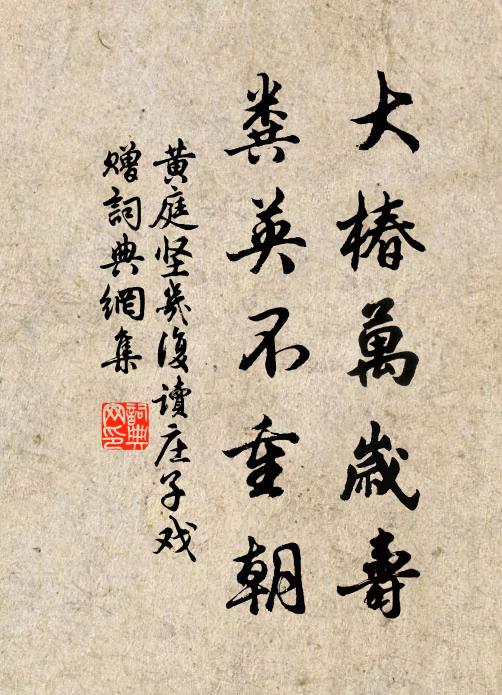 大椿萬歲壽
粪英不重朝
黄庭坚几復讀庄子戏
贈詞典網集
詞典网印